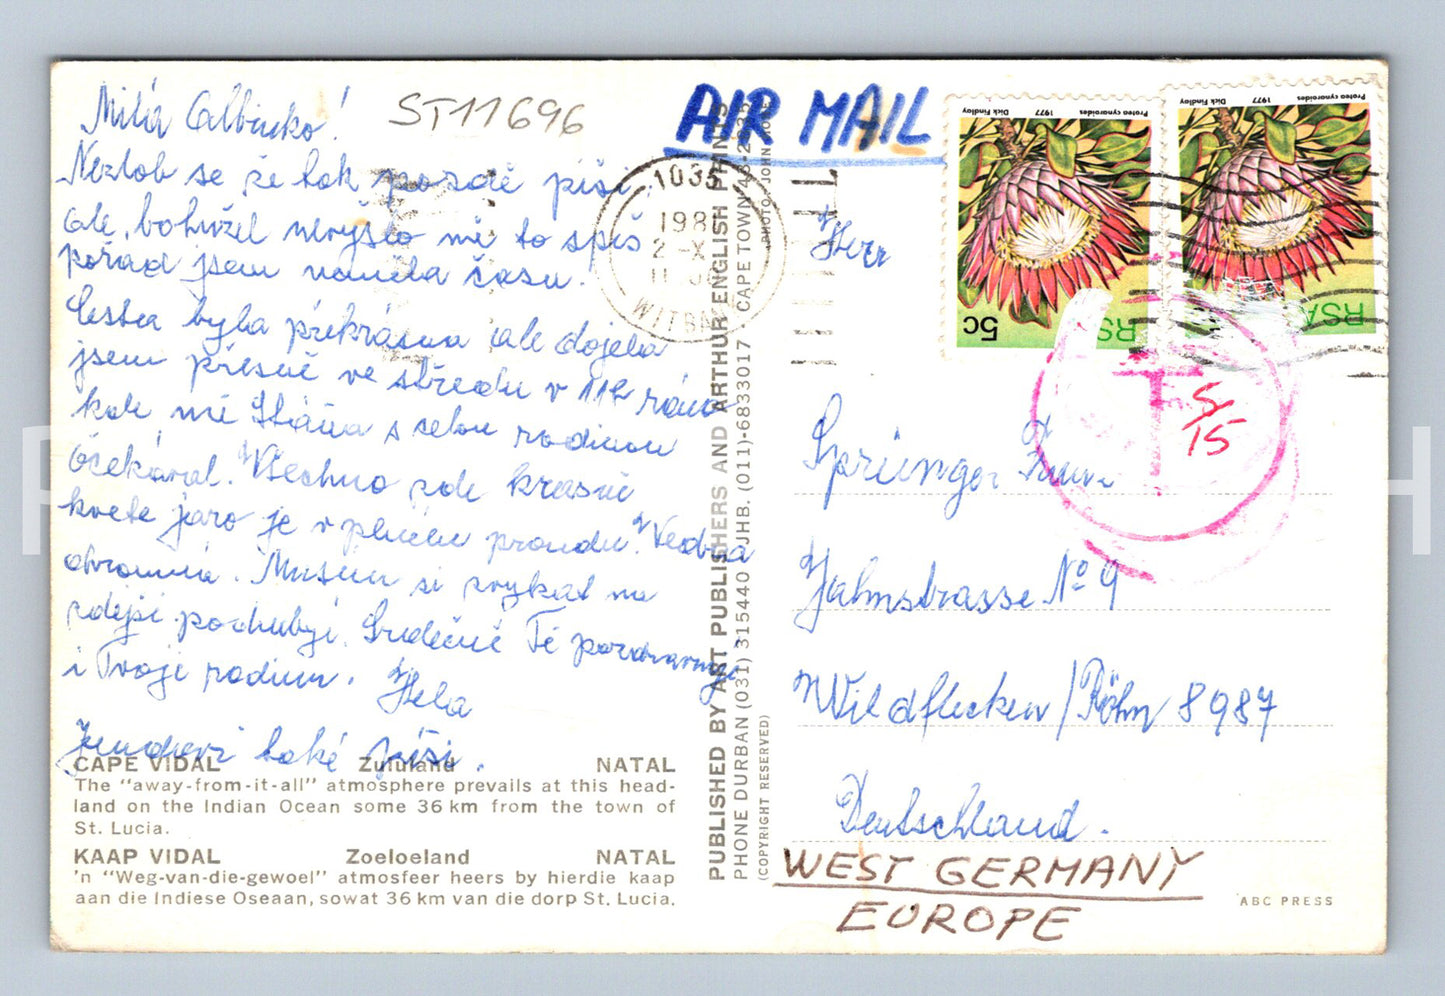 Milá Albinko!
ST11696
AIR MAIL
Nezlob se že tak pozdě píši,
ale, bohužel nevyšlo mě to spíš
pořád jsem neměla času.
Cesta byla překrásna ale dojela
jsem přesně ve středu v 11h ráno
kde mě Stáňa s celou rodinou
očekával. Všechno zde krasně
kvete jaro je v plném proudu. Vedra
ohromná. Musím si zvykat na
zdejší podnebí. Srdečně Tě pozdravuji
i Tvoji rodinu. Hela
také píši.
CAPE VIDAL Zululand NATAL
The "away-from-it-all" atmosphere prevails at this head-
land on the Indian Ocean some 36 km from the town of
St. Lucia.
KAAP VIDAL Zoeloeland NATAL
'n "Weg-van-die-gewoel" atmosfeer heers by hierdie kaap
aan die Indiese Oseaan, sowat 36 km van die dorp St. Lucia.
PUBLISHED BY ART PUBLISHERS AND ARTHUR ENGLISH PRINTS
PHONE DURBAN (031) 315440 JHB. (011)-6833017 - CAPE TOWN
(COPYRIGHT RESERVED)
PHOTO: JOHN
1035
198
2-X
11
WITBANK
Protea cynaroides 1977 Dick Findlay
5c RSA
Protea cynaroides 1977 Dick Findlay
RSA
T
5/15
Herr
Springer
Jahnstrasse No 9
Wildflecken/Röhn 8987
Deutschland.
WEST GERMANY
EUROPE
ABC PRESS